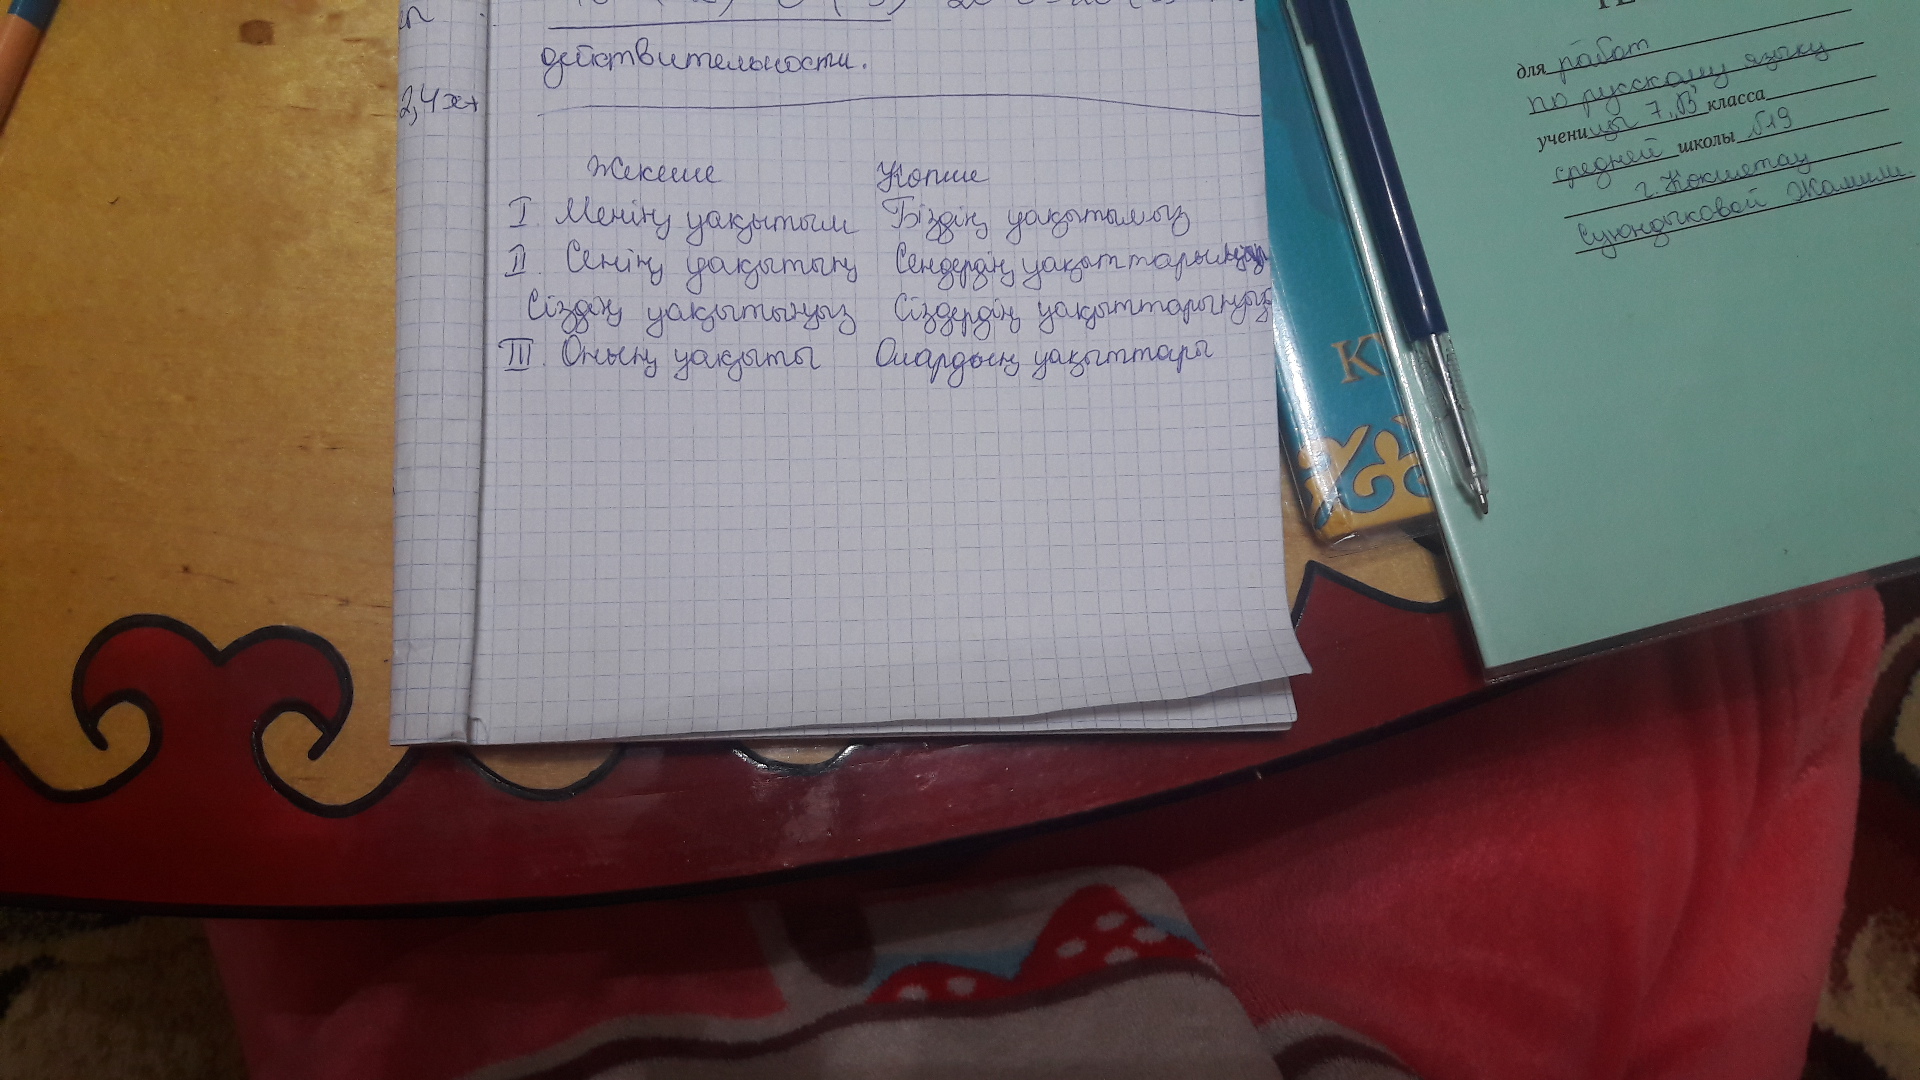 действительности.
2,4x+
Жекеше Көпше
I. Менің уақытым Біздің уақытымыз
II. Сенің уақытың Сендердің
Сіздің уақытыңыз Сіздердің уақыттарыңыз
III. Оның уақыты Олардың уақыттары
для работ
по русскому языку
ученицы 7 "В" класса
средней школы №19
г. Кокшетау
Суюндыковой Жамили
КҮ